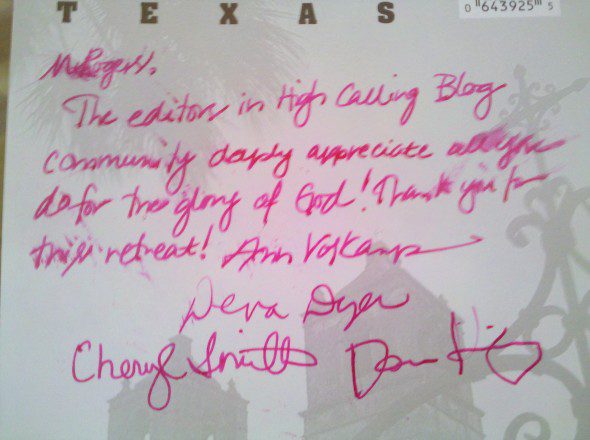 TEXAS
0 643925 5
Mr Rogers,
The editors in High Calling Blog
community deeply appreciate all you
do for the glory of God! Thank you for
this retreat! Ann Voskamp
Deva Dyer
Cheryl Smith